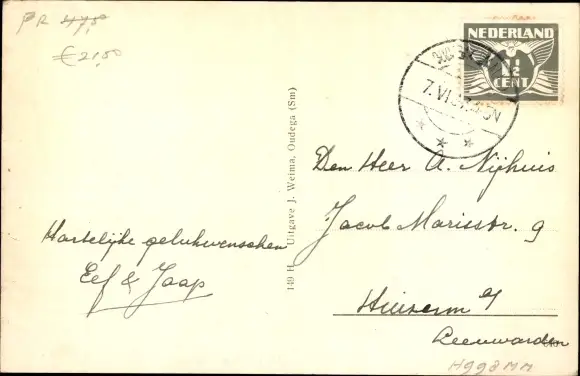 PR 47,5
€ 21,50
NEDERLAND
1½
CENT
7.VI
Hartelijke gelukwenschen
Eef & Jaap
149 H Uitgave J. Weima, Oudega (Sm)
Den Heer A. Nijhuis
Jacob Marisstr. 9
Huizum a/
Leeuwarden